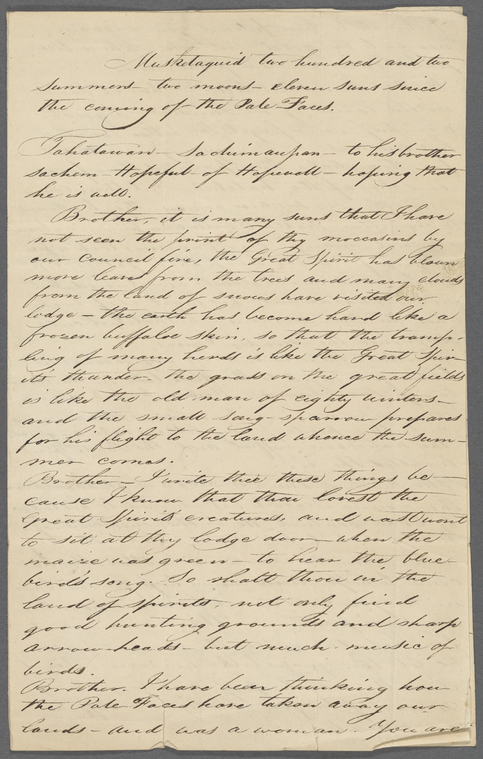 Musketaquid two hundred and two
summers- two moons- eleven suns since
the coming of- the Pale Faces.
Tahatawan- Sachimaupan- to his brother
sachem- Hopeful of Hopewell- hoping that
he is well.
Brother, it is many suns that I have
not seen the print of thy moccasins by
our council fire, the Great Spirit has blown
more leaves from the trees and many clouds
from the land of snows have visited our
lodge- the earth has become hard like a
frozen buffaloe skin, so that the tramp-
ling of many herds is like the Great Spir-
it's thunder- the grass on the great fields
is like the old man of eighty winters-
and the small song-sparrow prepares
for his flight to the land whence the sum-
mer comes.
Brother- I write thee these things be-
cause I know that thou lovest the
Great Spirit's creatures, and wast wont
to sit at thy lodge door- when the
maize was green- to hear the blue
bird's song. So shalt thou in the
land of spirits, not only find
good hunting grounds and sharp
arrow-heads- but much music of
birds.
Brother. I have been thinking how
the Pale Faces have taken away our
lands- and was a woman. You are